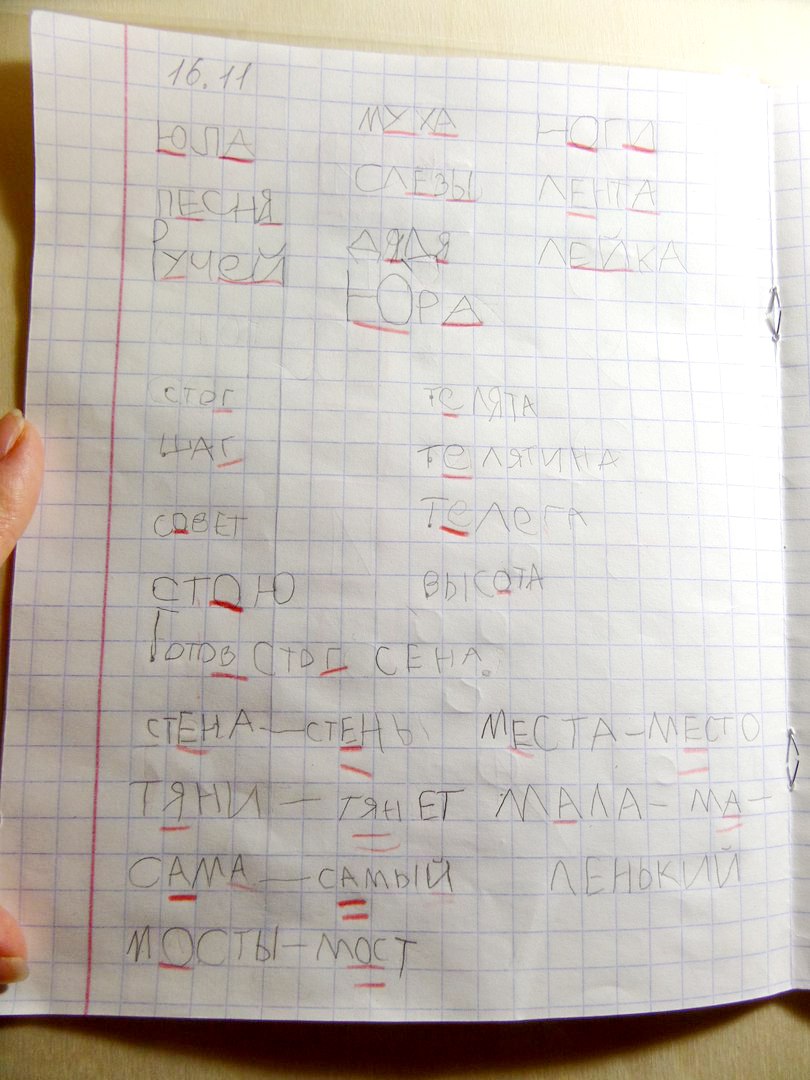 16.11
ЮЛА МУХА НОГА
ПЕСНЯ СЛЕЗЫ ЛЕНТА
РУЧЕЙ ДЯДЯ ЛЕЙКА
ЮРА
СТОГ ТЕЛЯТА
ШАГ ТЕЛЯТИНА
СОВЕТ ТЕЛЕГА
СТОЮ ВЫСОТА
ГОТОВ СТОГ СЕНА.
СТЕНА — СТЕНЫ МЕСТА – МЕСТО
ТЯНИ — ТЯНЕТ МАЛА – МА –
САМА — САМЫЙ ЛЕНЬКИЙ
МОСТЫ – МОСТ